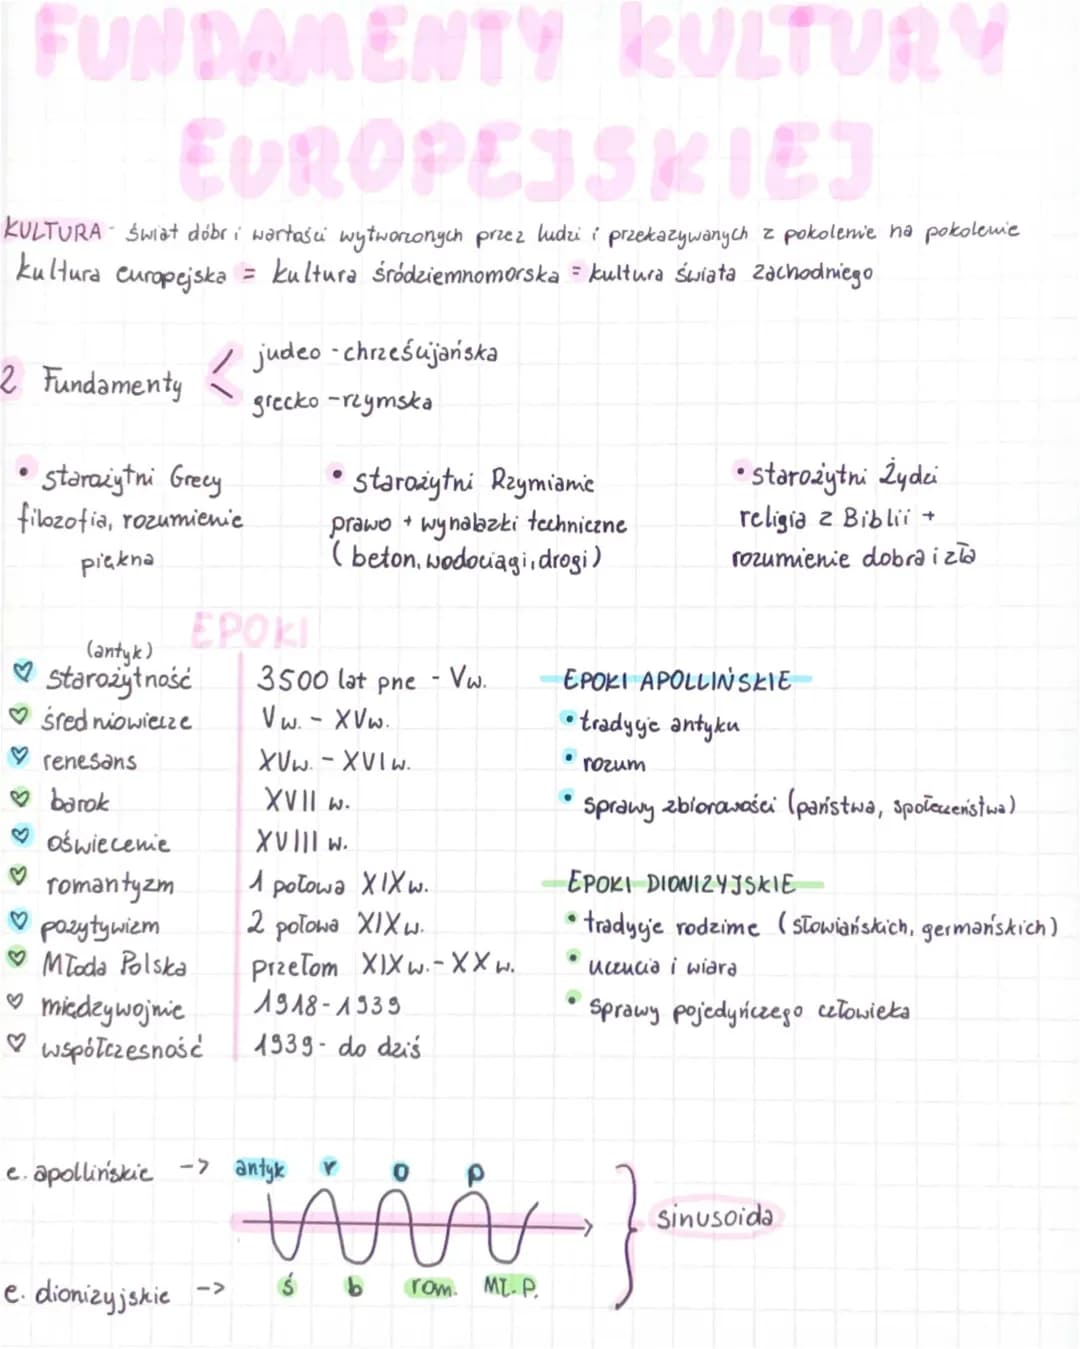 FUNDAMENTY KULTURY
EUROPEJSKIEJ
KULTURA - świat dóbr i wartości wytworzonych przez ludzi i przekazywanych z pokolenie na pokolenie
kultura europejska = kultura śródziemnomorska = kultura świata zachodniego
2 Fundamenty < judeo - chrześcijańska
grecko - rzymska
• starożytni Grecy
filozofia, rozumienie
piękna
• starożytni Rzymianie
prawo + wynalazki techniczne
(beton, wodociągi, drogi)
• starożytni Żydzi
religia z Biblii +
rozumienie dobra i zła
EPOKI
(antyk)
♡ starożytność 3500 lat pne - V w.
♡ średniowiecze V w. - XV w.
♡ renesans XV w. - XVI w.
♡ barok XVII w.
♡ oświecenie XVIII w.
♡ romantyzm 1 połowa XIX w.
♡ pozytywizm 2 połowa XIX w.
♡ Młoda Polska przełom XIX w. - XX w.
♡ międzywojnie 1918-1939
♡ współczesność 1939- do dziś
EPOKI APOLLIŃSKIE
• tradycje antyku
• rozum
• sprawy zbiorowości (państwa, społeczeństwa)
EPOKI DIONIZYJSKIE
• tradycje rodzime (słowiańskich, germańskich)
• uczucia i wiara
• sprawy pojedyńczego człowieka
e. apollińskie -> antyk r o p
sinusoida
e. dionizyjskie -> ś b rom. Mł. P.